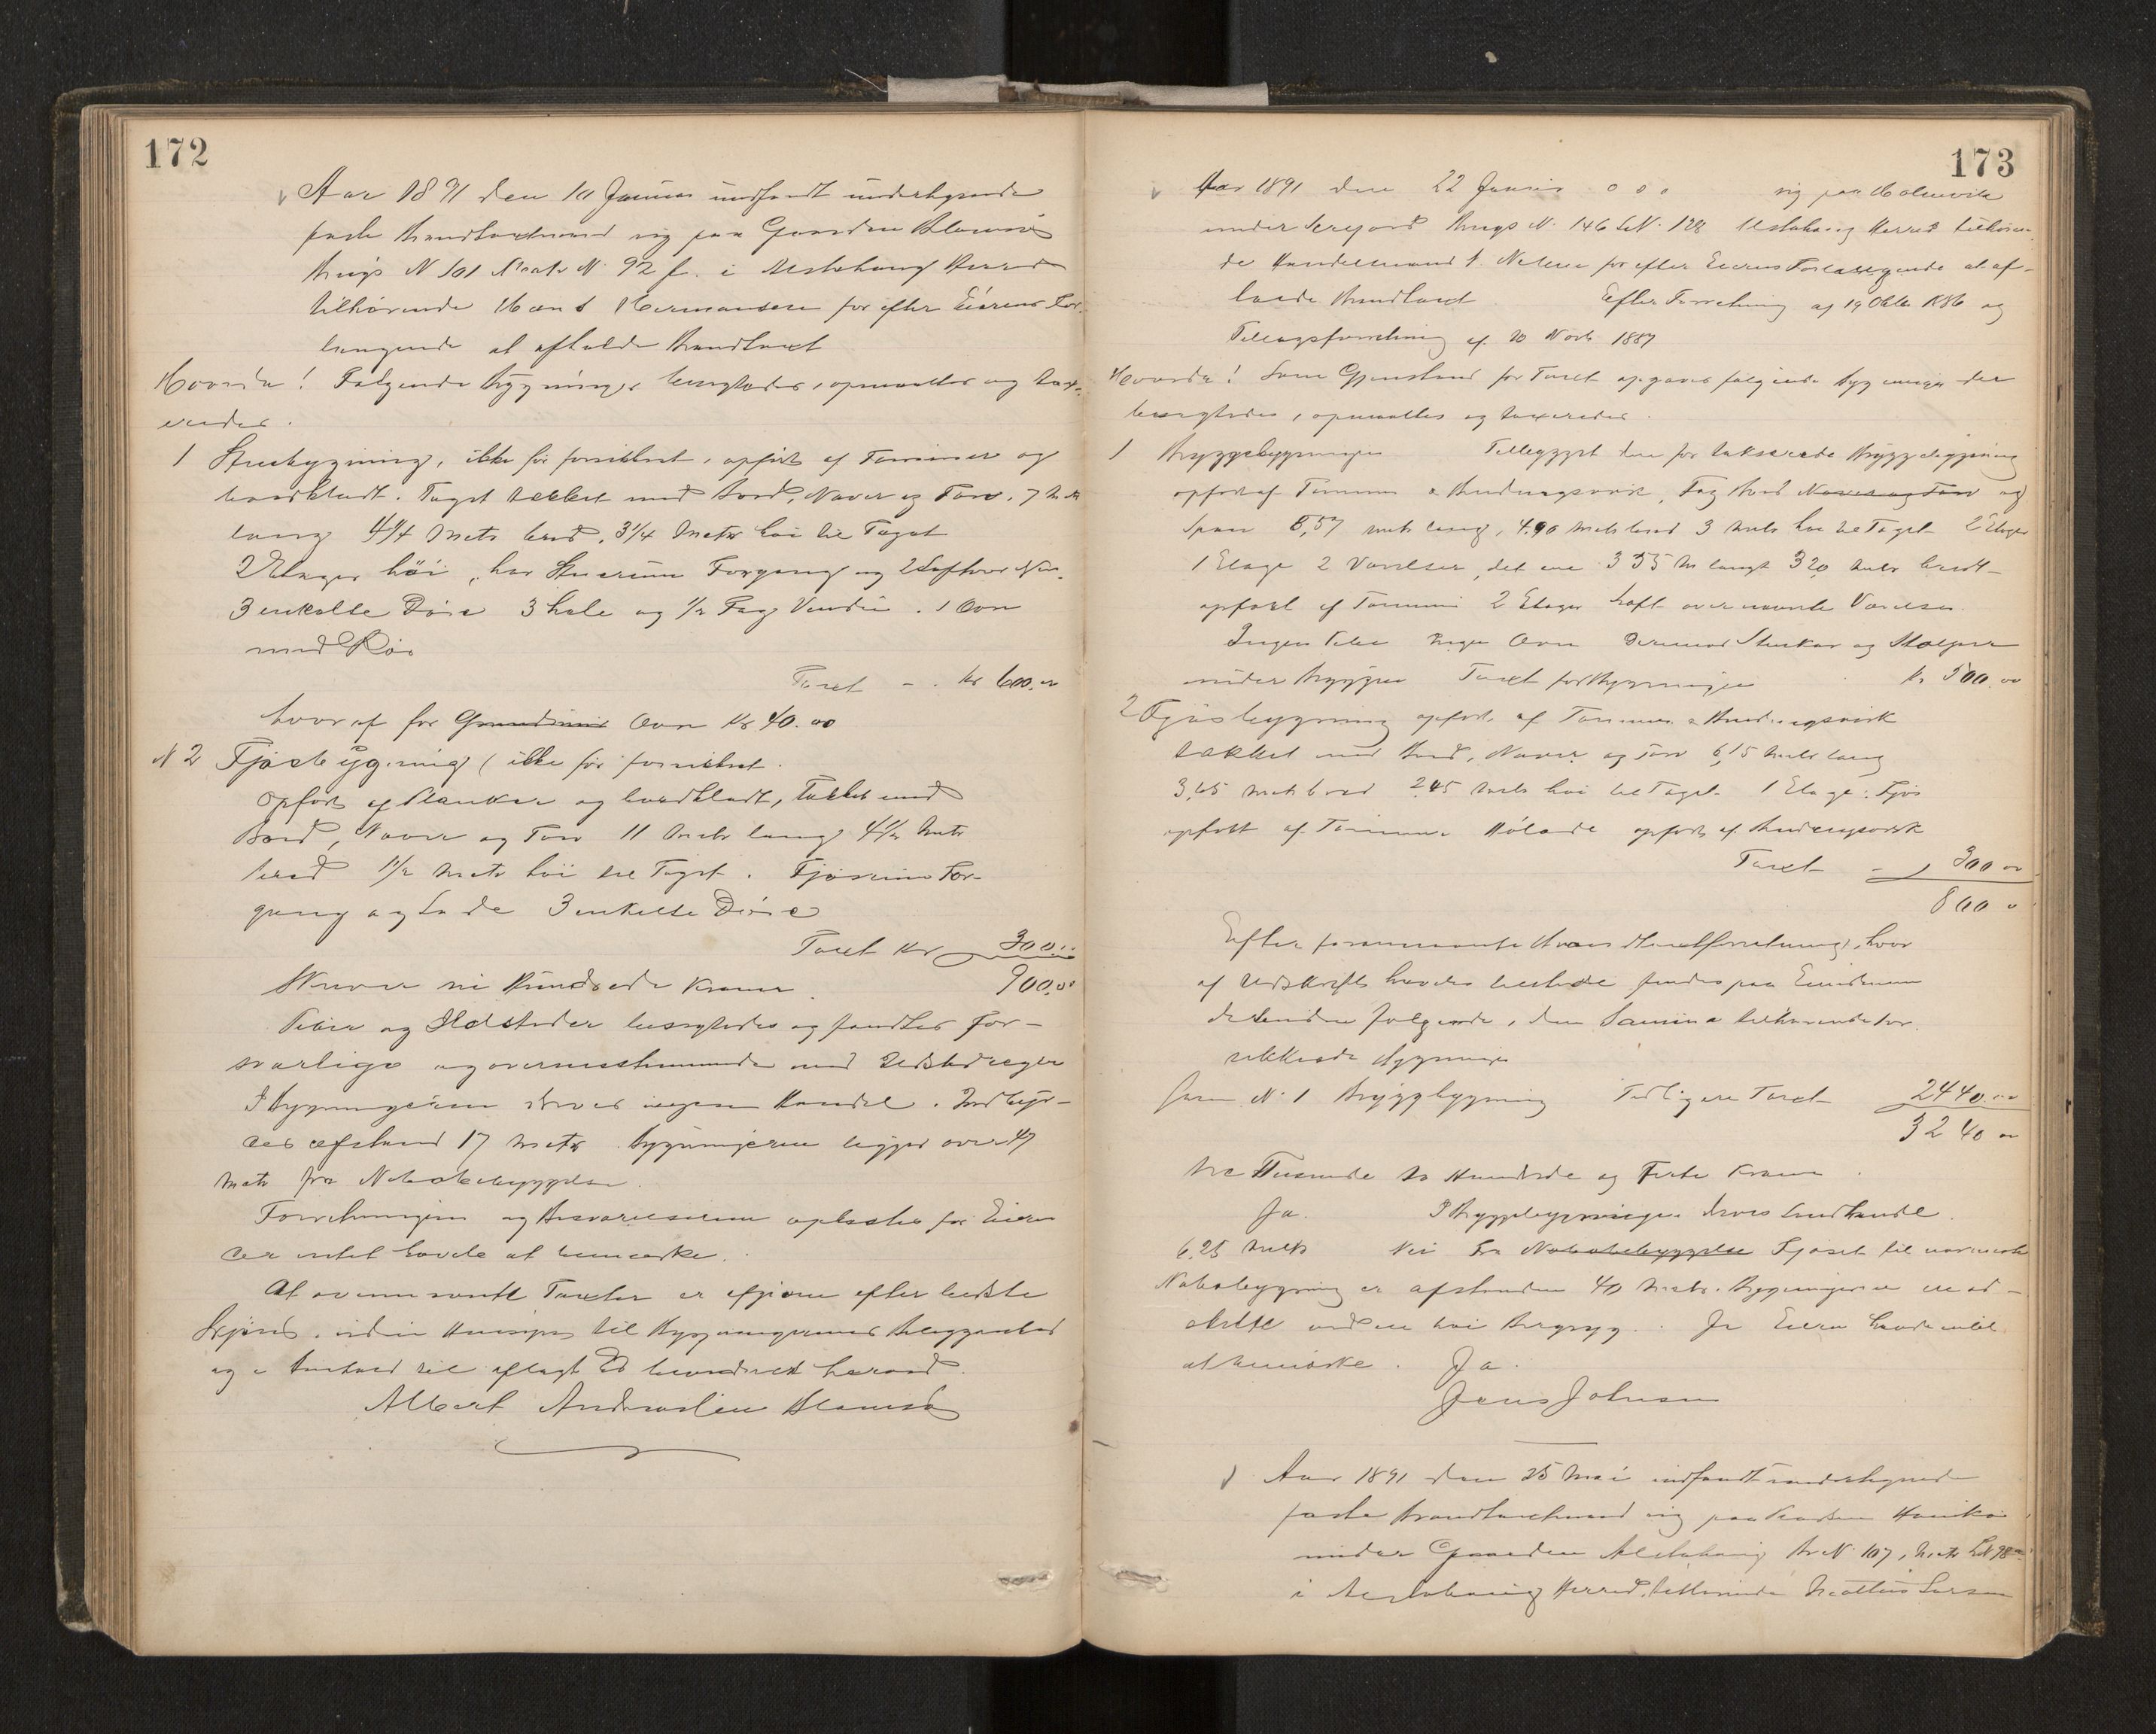 172
Aar 1891 den 10 Januar indfandt undertegnede
faste Brandtaxtmænd sig paa Gaarden Blomsø
Brugs N 101 Matr N 92 f. i Alstahaug Herred
tilhørende Hans Hermansen for efter Eierens For-
langende at afholde Brandtaxt
Hvorda! Følgende Bygninger besigtedes, opmaaltes og tax-
eredes.
1 Stuebygning, ikke før forsikret, opført af Tømmer og
bordklædt. Taget tækket med Bord, Næver og Torv. 7 Mtr
lang 4 1/4 Metr bred, 3 1/4 Metr høi til Taget
2 Etager höi, har Stuerum Forgang og 2 Loft
3 enkelte Döre 3 hele og 1/2 Fag Vinduer. 1 Ovn
med Rör
Taxt - . Kr 600.00
hvoraf for Ovn Kr 40.00
N 2 Fjøsbygning (ikke før forsikret.
Opført af Planker og bordklædt, tækket med
Bord, Næver og Torv 11 Metr lang 4 1/2 Metr
bred 1 1/2 Metr höi til Taget. Fjøsrum For-
gang og Lade 3 enkelte Döre
Taxt Kr 300.00
Skriver ni Hundrede Kroner. 900.00
Piber og Ildsteder besigtedes og fandtes for-
svarlige og overensstemmende med
I Bygningerne drives ingen Handel. Indbyr-
des afstand 17 Metr. Bygningerne ligger over 47
Metr fra Nabobebyggelse.
Forretningen og Besvarelserne oplæstes for Eieren
der intet havde at bemærke.
At ovennævnte Taxter er afgivne efter bedste
Skjøn, uden Hensyn til Bygningernes Beliggenhed
og i Henhold til aflagt Ed bevidnet herved.
Albert Andreassen Blomsø
173
Aar 1891 den 22 Januar o o o sig paa Holmvik
under Brugs N. 146 LN. 128 Alstahaug Herred tilhøren-
de Handelsmand Nilsen for efter Eierens Forlangende at af-
holde Brandtaxt Efter Forretning af 19 Oktbr 1886 og
Tillægsforretning af 10 Novb 1887
Hvorda! Som Gjenstand for Taxt opgaves følgende Bygninger der
besigtedes, opmaaltes og taxeredes.
1 Bryggebygningen Tilbygget den før takserede Bryggebygning
opført af Tømmer & Bindingsværk, Tag Bord Næver og Torv og
Spaan 8,57 metr lang, 4.90 Metr bred 3 Metr høi til Taget 2 Etager
1 Etage 2 Værelser, det ene 3 55 M langt 3 20 Metr bredt
opført af Tømmer 2 Etage Loft over nævnte Værelser.
Ingen Piber Ingen Ovn Stenkar og Stolper
under Bryggen Taxt for Bygningen Kr 500.00
2 Fjøsbygning opført af Tømmer & Bindingsværk
tækket med Bord, Næver og Torv 6,15 Metr lang
3,65 Metr bred 2,45 Metr høi til Taget 1 Etage: Fjøs
opført af Tømmer Hølade opført af Bindingsværk
Taxt - 300 00
800 00
Efter forannævnte Brandtaxtforretning, hvor
af Udskrift havdes tilstede fandtes paa Eiendommen
desuden følgende, den Samme tilhørende for-
sikkrede Bygninger
Som N. 1 Bryggebygning Tidligere Taxt 2440.00
3240 00
tre Tusinde to Hundrede og Firti Kroner.
Ja. I Bryggebygningen drives Landhandel.
6,25 Metr Nei Fra Nabobebyggelse Fjøset til nærmeste
Nabobygning er afstanden 40 Metr. Bygningerne ere ad-
skilte ved en høi Bergryg. Ja Eieren havde intet
at bemærke. Ja.
Jens Johnsen
Aar 1891 den 25 Mai indfandt undertegnede
faste Brandtaxtmænd sig paa Pladsen
under Gaarden Alstahaug Br N. 107, Matr LN 98
i Alstahaug Herred, tilhørende Mattias Larsen